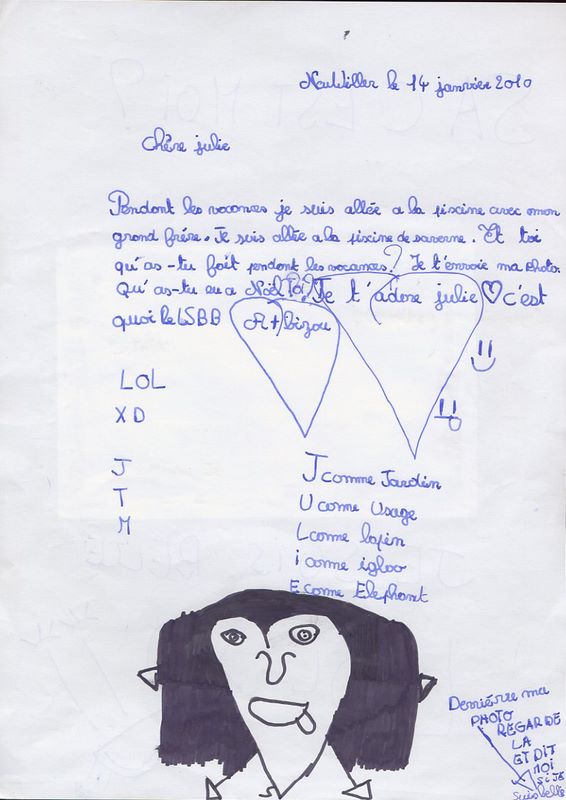 Neuwiller le 14 janvier 2010
Chère julie
Pendont les vacances je suis allée a la piscine avec mon
grand frére. Je suis allée a la piscine de saverne. Et toi
qu'as-tu fait pendont les vacances? Je t'envoie ma photo.
Qu'as-tu eu a Noël Toi? Je t'adore julie ♡ c'est
quoi le LSBB A+ bizou
LOL
XD
J
T
M
J comme Jardin
U come Usage
L come lapin
i come igloo
E come Elephant
Derriére ma
PHOTO
REGARDE
LA
ET DIT
MOI
Si JE
suis belle